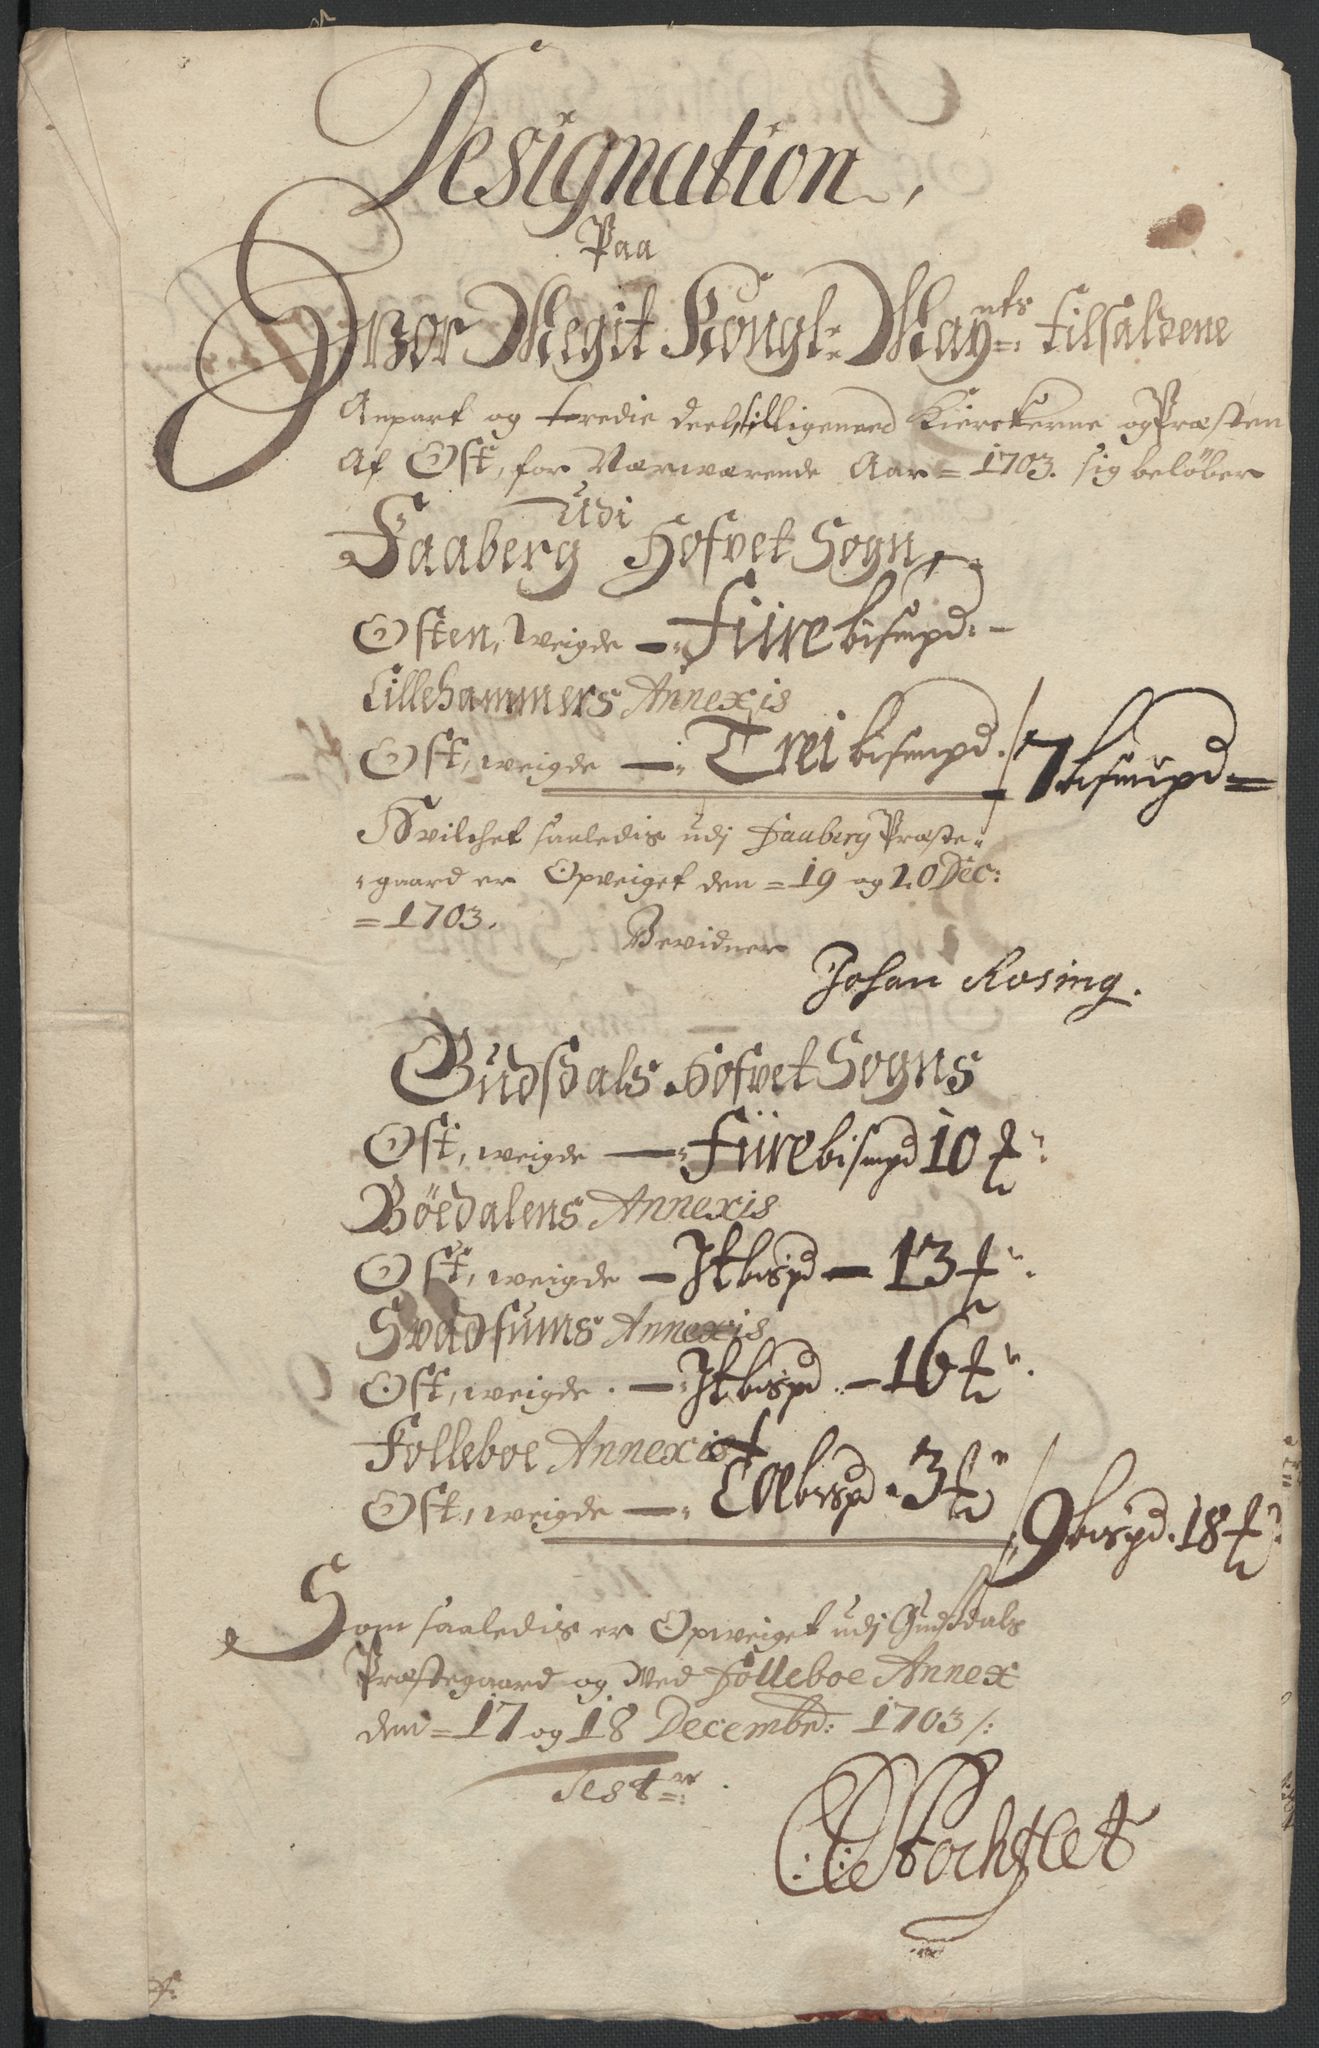 Designation,
Paa
Hvor Megit Kongl: May:nts tilfaldene
Anpart og tredie deel, tilligemed Kierckerne og Præsten
Af Ost, for Nærværende Aar = 1703. sig beløber
Udi
Faaberg Hofvet Sogn
Osten, Weigde —: Fiire bismpd: –
Lillehammers Annexis
Ost, weigde —: Trei bismpd. / 7 bismpd =
Hvilchet saaledis udj Faaberg Præste-
gaard er Opveiget den = 19 og 20 Dec:
= 1703.
Bevidner
Johan Rosing.
Gudsdals Hofvet Sogns
Ost, weigde —: Fiire bismpd 10 ℔
Böedalens Annexis
Ost, weigde — It bispd — 13 ℔
Svadsums Annexis
Ost, weigde. —: It bispd. – 16 ℔
Folleboe Annexis
Ost, weigde —: Toe bispd. 3 ℔ / 9 bispd. 18 ℔
Som saaledis er Opweiget udj Gudsdals
Præstegaard og Ved Folleboe Annex
den = 17 og 18 Decembr: 1703 /:
Test: